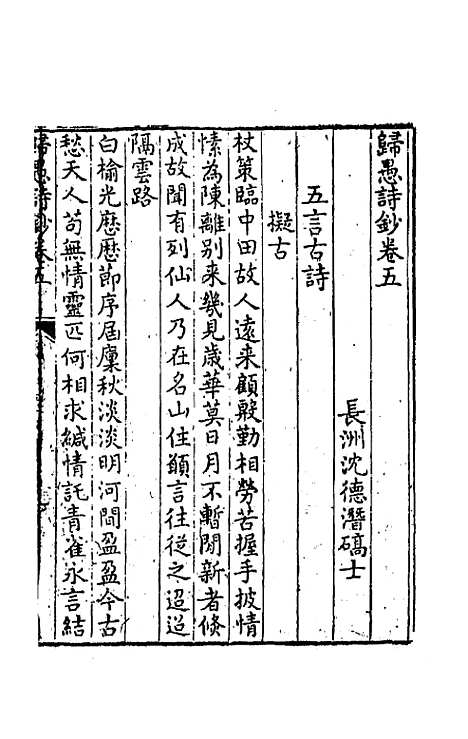 歸愚詩鈔卷五
長洲沈德潛碻士
五言古詩
擬古
杖策臨中田故人遠来顧殷勤相勞苦握手披情
愫為陳離别来幾見歲華莫日月不暫閒新者倏
成故聞有列仙人乃在名山住願言往從之迢迢
隔雲路
白榆光歷歷節序屆廩秋淡淡明河間盈盈今古
愁天人苟無情靈匹何相求緘情託青雀永言結
歸愚詩鈔卷五